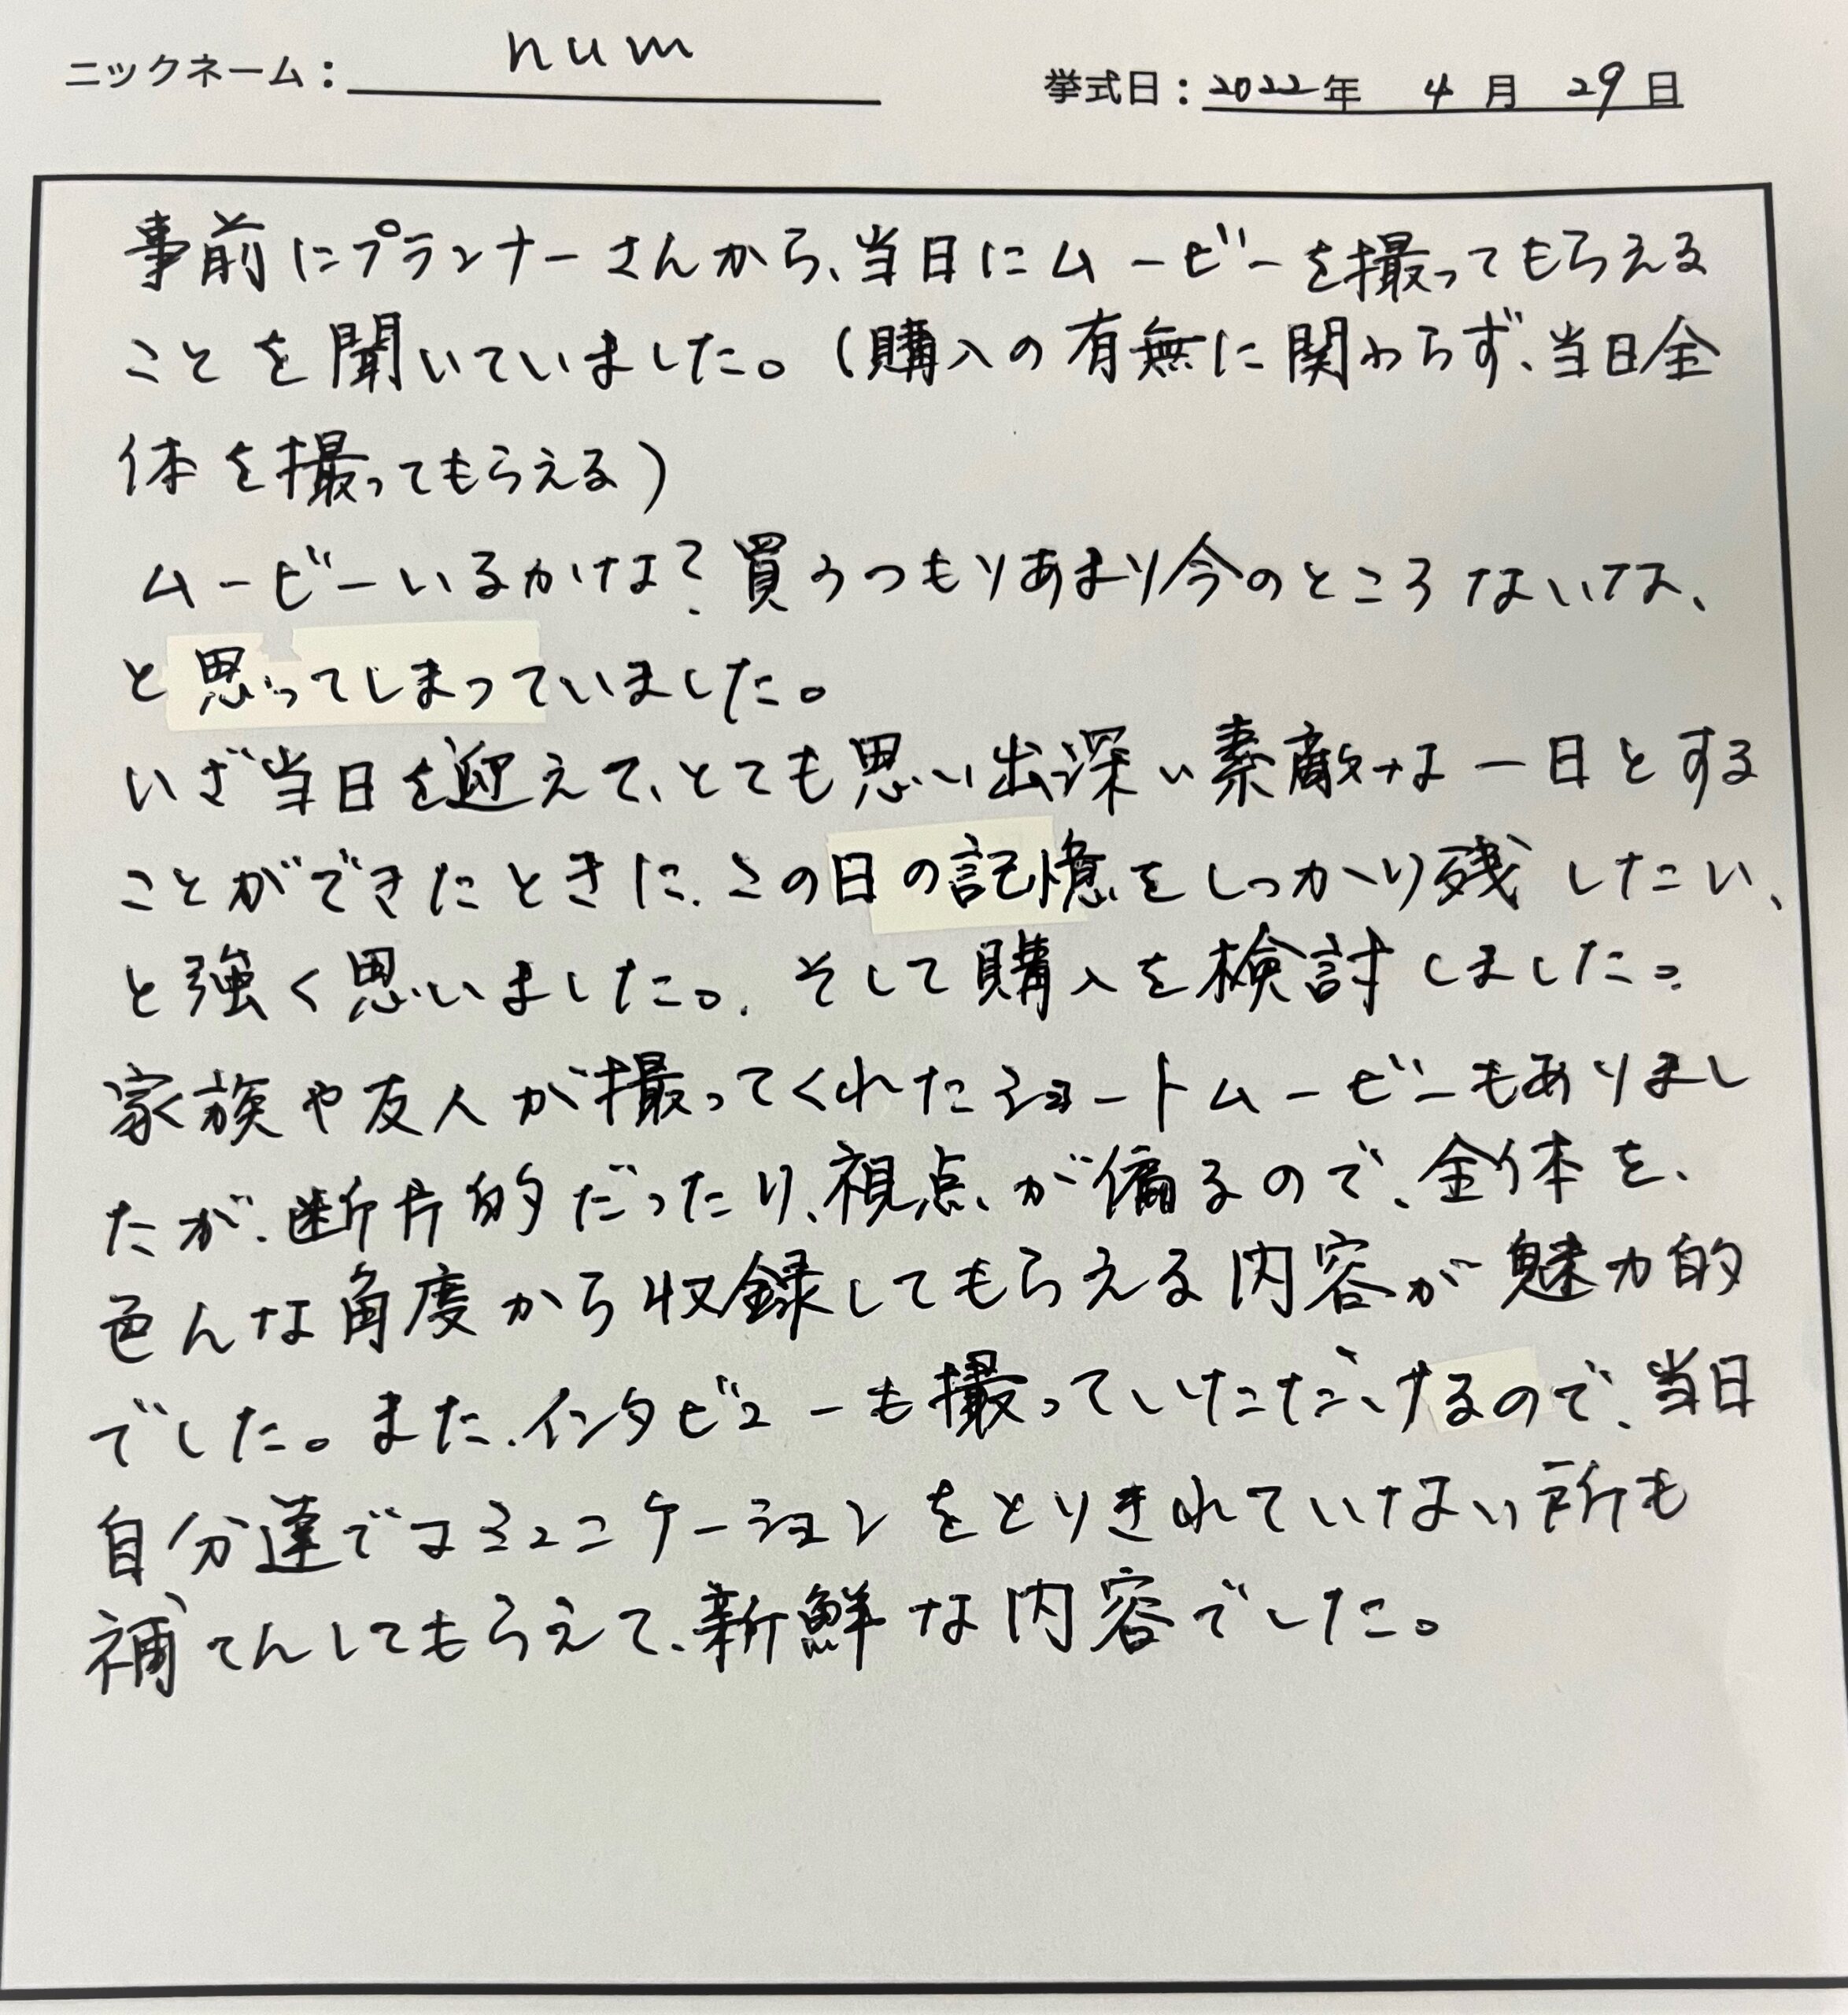 ニックネーム: num 挙式日:2022年 4月 29日
事前にプランナーさんから、当日にムービーを撮ってもらえる
ことを聞いていました。(購入の有無に関わらず、当日全
体を撮ってもらえる)
ムービーいるかな?買うつもりあまり今のところないな、
と思ってしまっていました。
いざ当日を迎えて、とても思い出深い素敵な一日とする
ことができたときに、この日の記憶をしっかり残したい、
と強く思いました。そして購入を検討しました。
家族や友人が撮ってくれたショートムービーもありまし
たが、断片的だったり、視点が偏るので、全体を、
色んな角度から収録してもらえる内容が魅力的
でした。また、インタビューも撮っていただけるので、当日
自分達でコミュニケーションをとりきれていない所も
補てんしてもらえて、新鮮な内容でした。